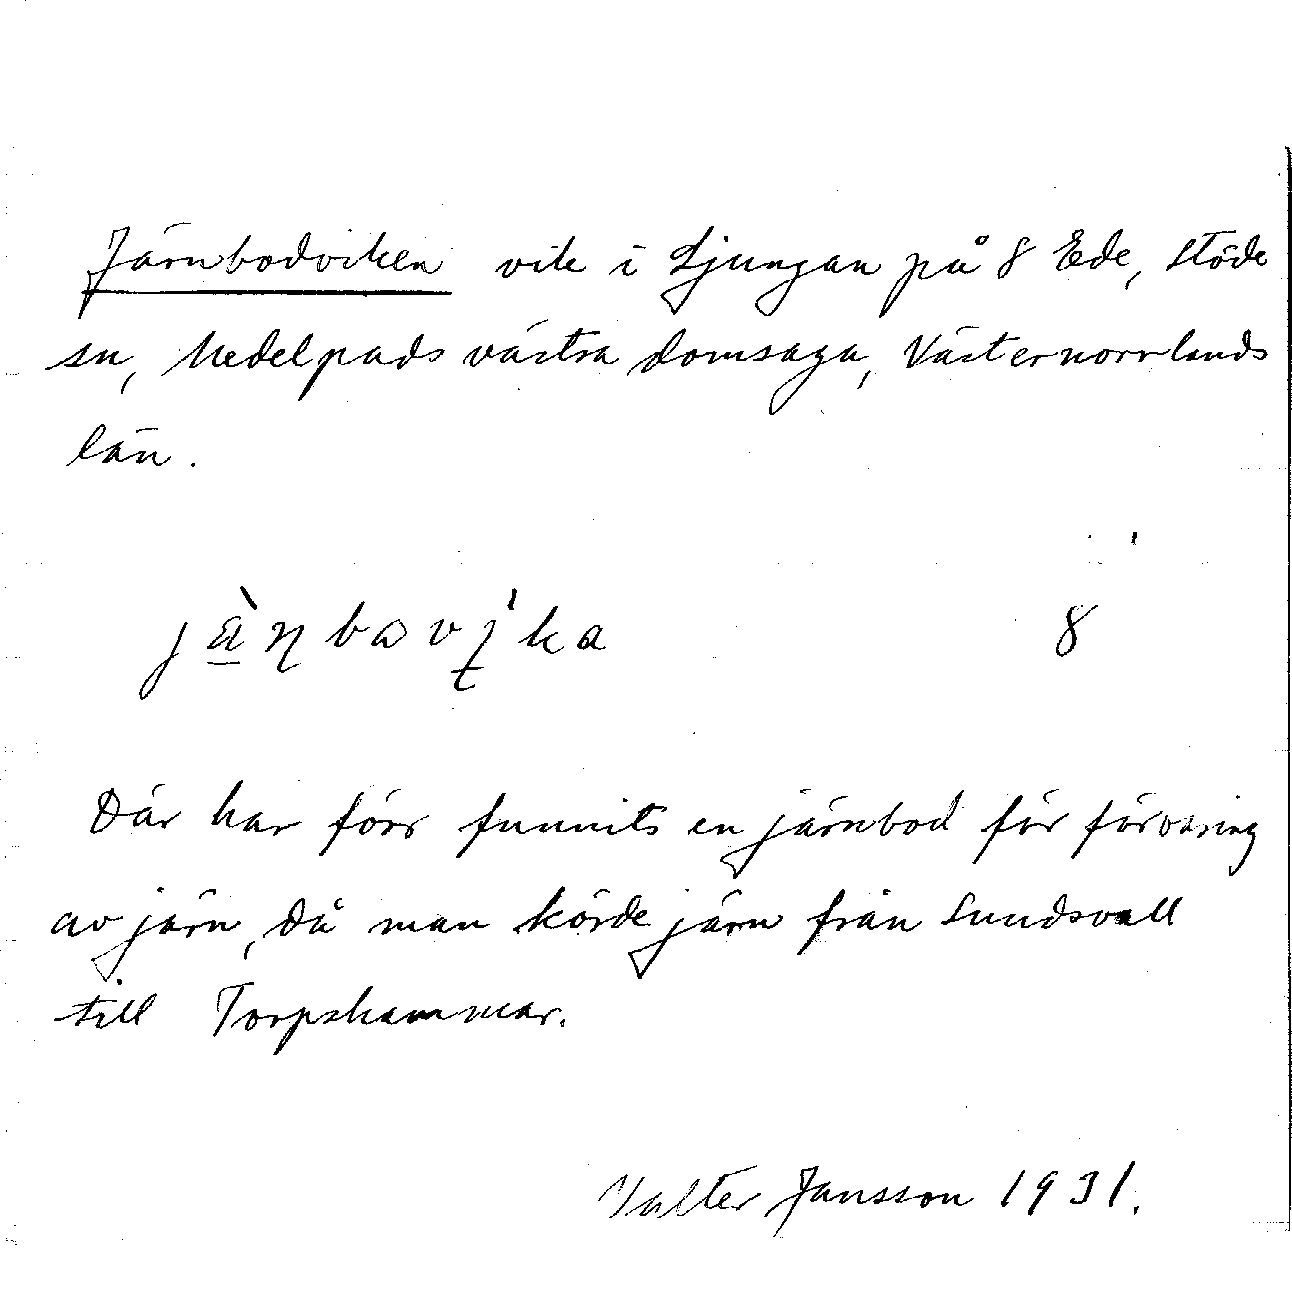 Järnbodviken vik i Ljungan på 8 Ede, Stöde
sn, Medelpads västra domsaga, Västernorrlands
län.
8
Där har förr funnits en järnbod för förvaring
av järn, då man körde järn från Sundsvall
till Torpshammar.
Valter Jansson 1931.